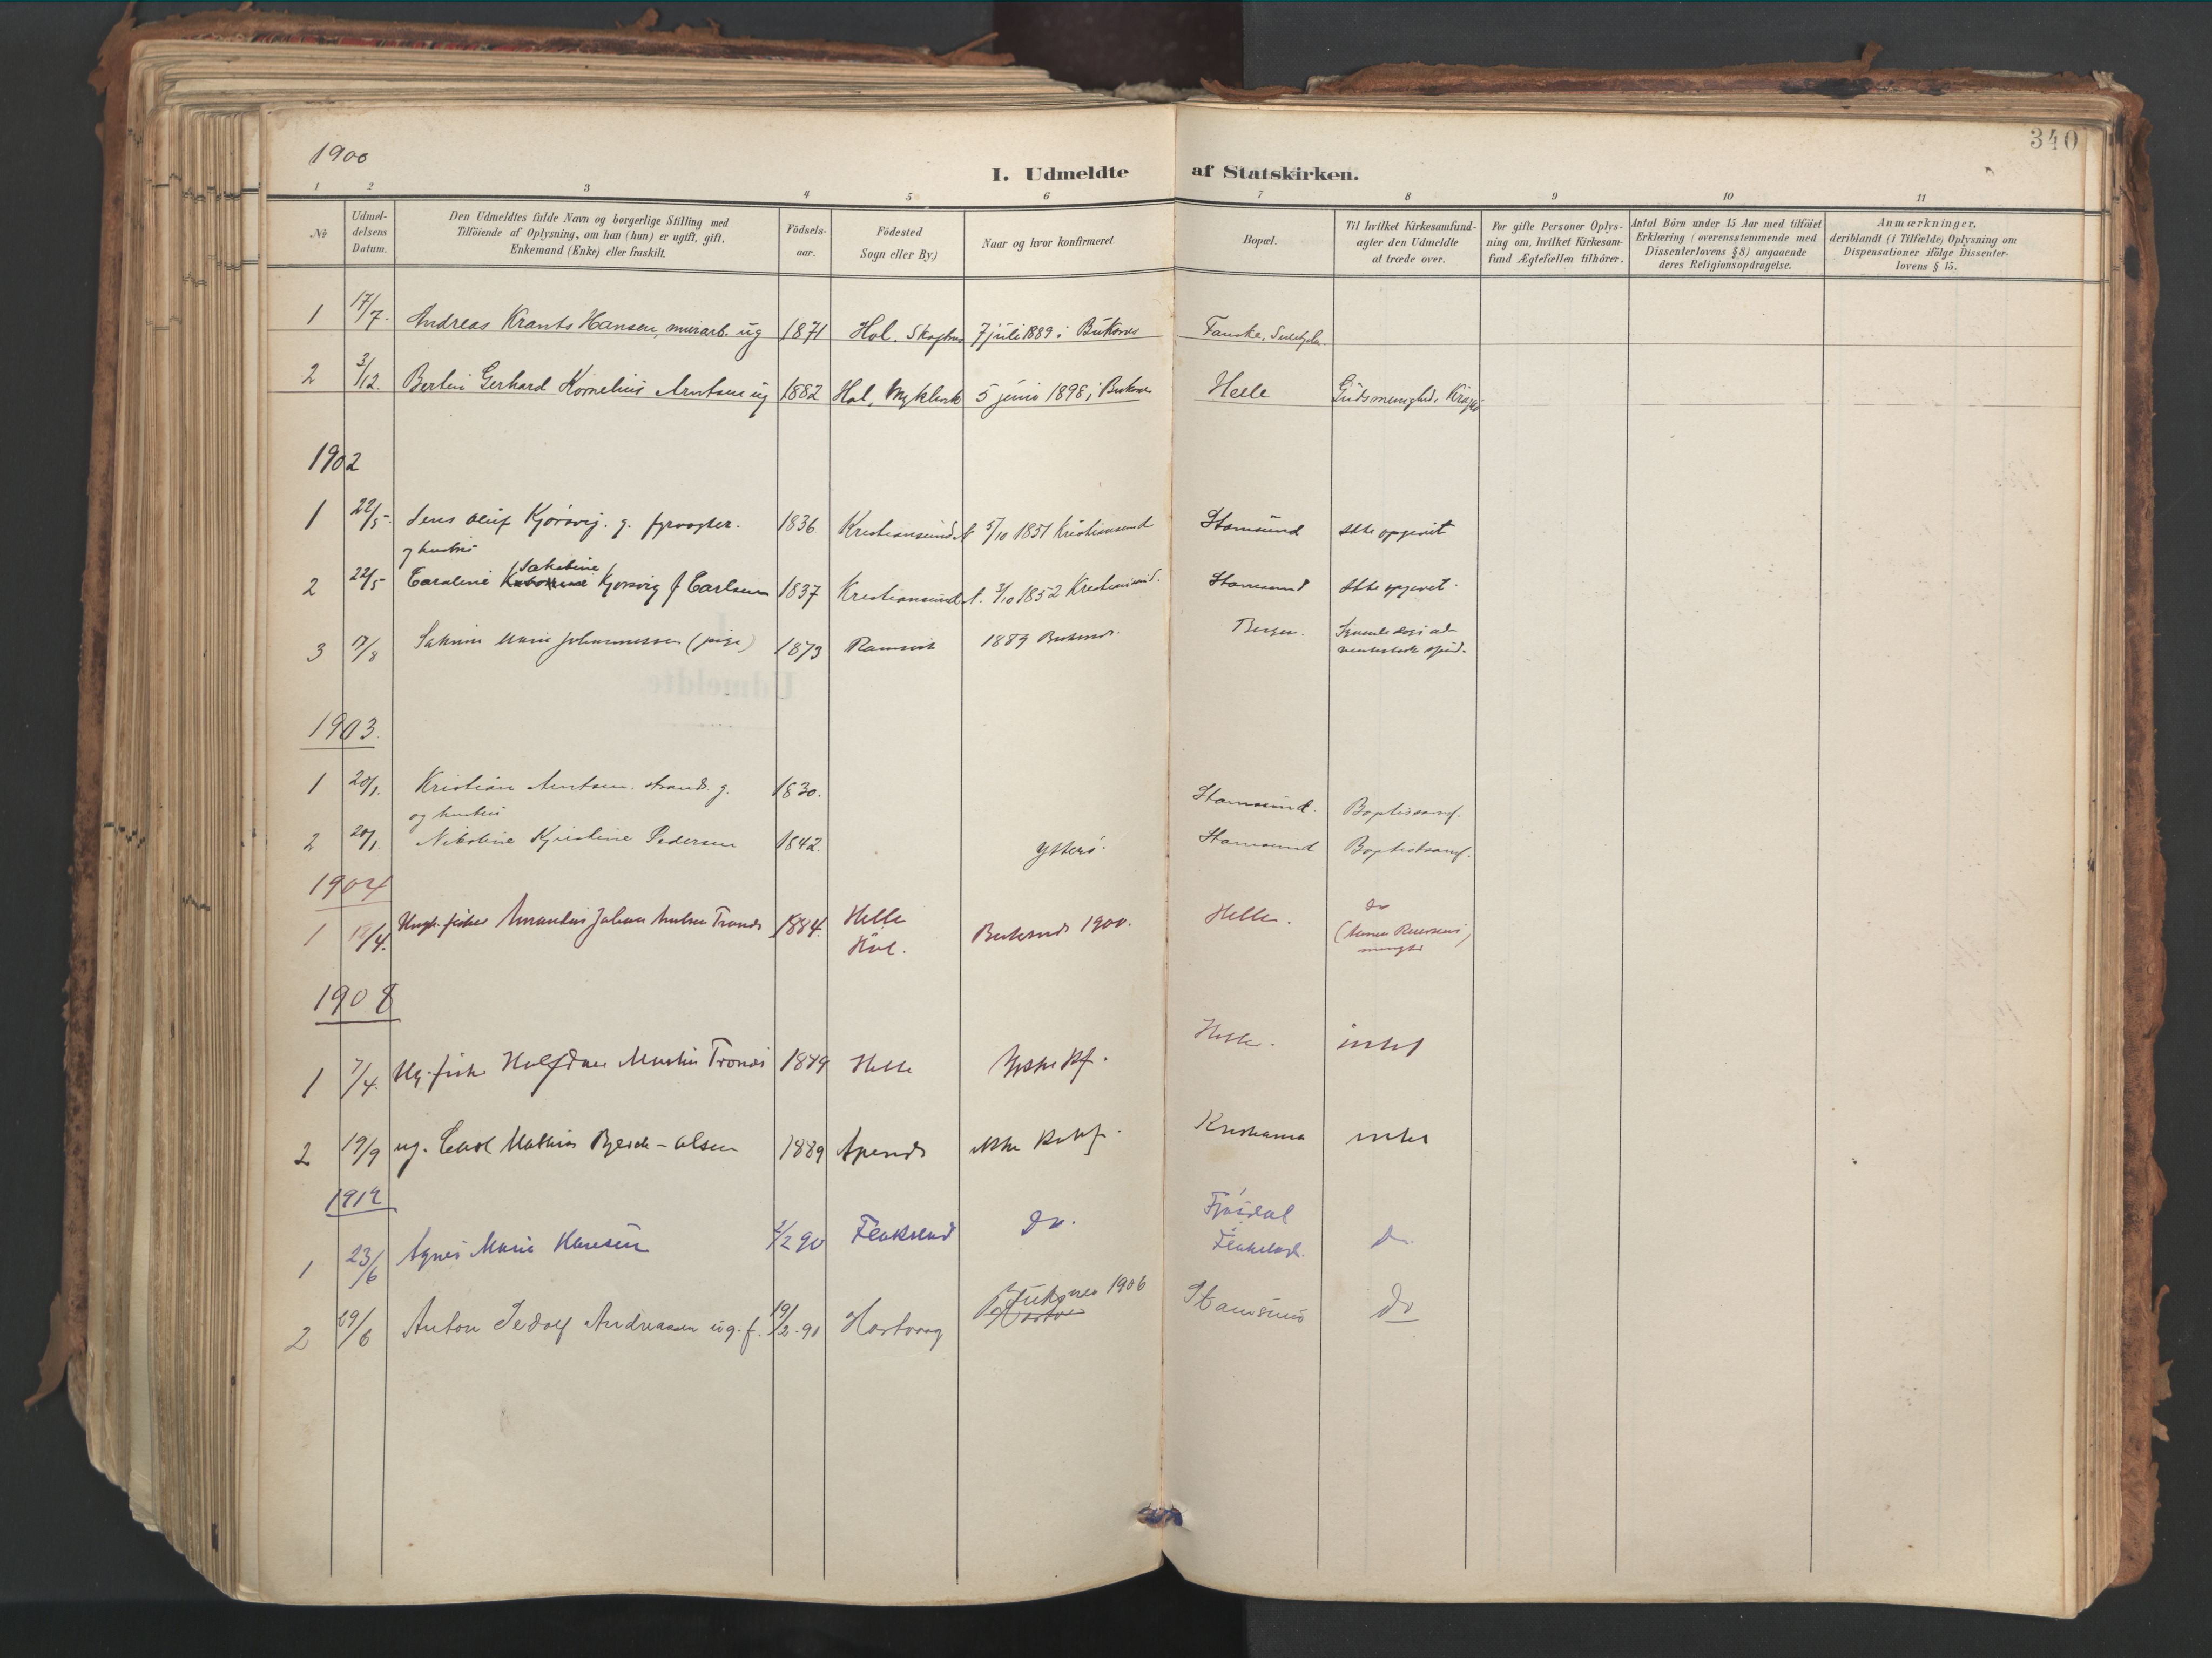 340
1900
I. Udmeldte af Statskirken.
1 2 3 4 5 6 7 8 9 10 11
№
Udmel-
delsens
Datum.
Den Udmeldtes fulde Navn og borgerlige Stilling med
Tilföiende af Oplysning, om han (hun) er ugift, gift,
Enkemand (Enke) eller fraskilt.
Födsels-
aar.
Födested
Sogn eller By.)
Naar og hvor konfirmeret.
Bopæl.
Til hvilket Kirkesamfund
agter den Udmeldte
at træde over.
For gifte Personer Oplys-
ning om, hvilket Kirkesam-
fund Ægtefællen tilhörer.
Antal Börn under 15 Aar med tilföiet
Erklæring (overensstemmende med
Dissenterlovens § 8) angaaende
deres Religionsopdragelse.
Anmærkninger,
deriblandt (i Tilfælde) Oplysning om
Dispensationer ifölge Dissenter-
lovens § 15.
1 17/7. Andreas Krants Hansen, murarb. ug 1871 Hol. 7 juli 1889 i Buksnes Fauske,
2 3/12. Bertin Gerhard Kornelius Arntsen ug 1882 Hol, 5 juni 1898 i Buksnes Helle Gudsmenighed,
1902
1 22/5. Jens Oluf Kjørsvig. g. fyrvogter. 1836 Kristiansund N 5/10 1851 Kristiansund Stamsund Ikke opgivet
og hustru
Jakobine
2 22/5 Caroline Kjørsvig f Carlsen 1837 Kristiansund N. 3/10 1852 Kristiansund. Stamsund Ikke opgivet.
3 17/8 Marie Johannessen (pige) 1873 Ramsvik 1889 Buksnes. Bergen. Syvende dags ad-
ventistsamfund.
1903.
1 20/1. Kristian Arntsen. strands. g. 1830. Stamsund. Baptistsamf.
og hustru
2 20/1. Nikoline Kristine Pedersen 1842. Stamsund Baptistsamf.
1904
1 /4. Ungk. fisker Amandus Johan Trones 1884. Helle Buksnes 1900. Helle. do
Hol. menighed
1908
1 7/4. Ug. fisker Halfdan Martin Trones 1889 Helle Ikke kf. Helle. intet
2 19/9 ug. Carl Mathias Olsen 1889 Apenes ikke konf. Kristiania intet
1912
Fjøsdal
1 23/6 Agnes Marie Hansen 2/2 90 Flakstad do. Flakstad. do.
2 29/6 Anton Andreassen ug. f. 19/2-91 Hartvaag 1906 Stamsund do